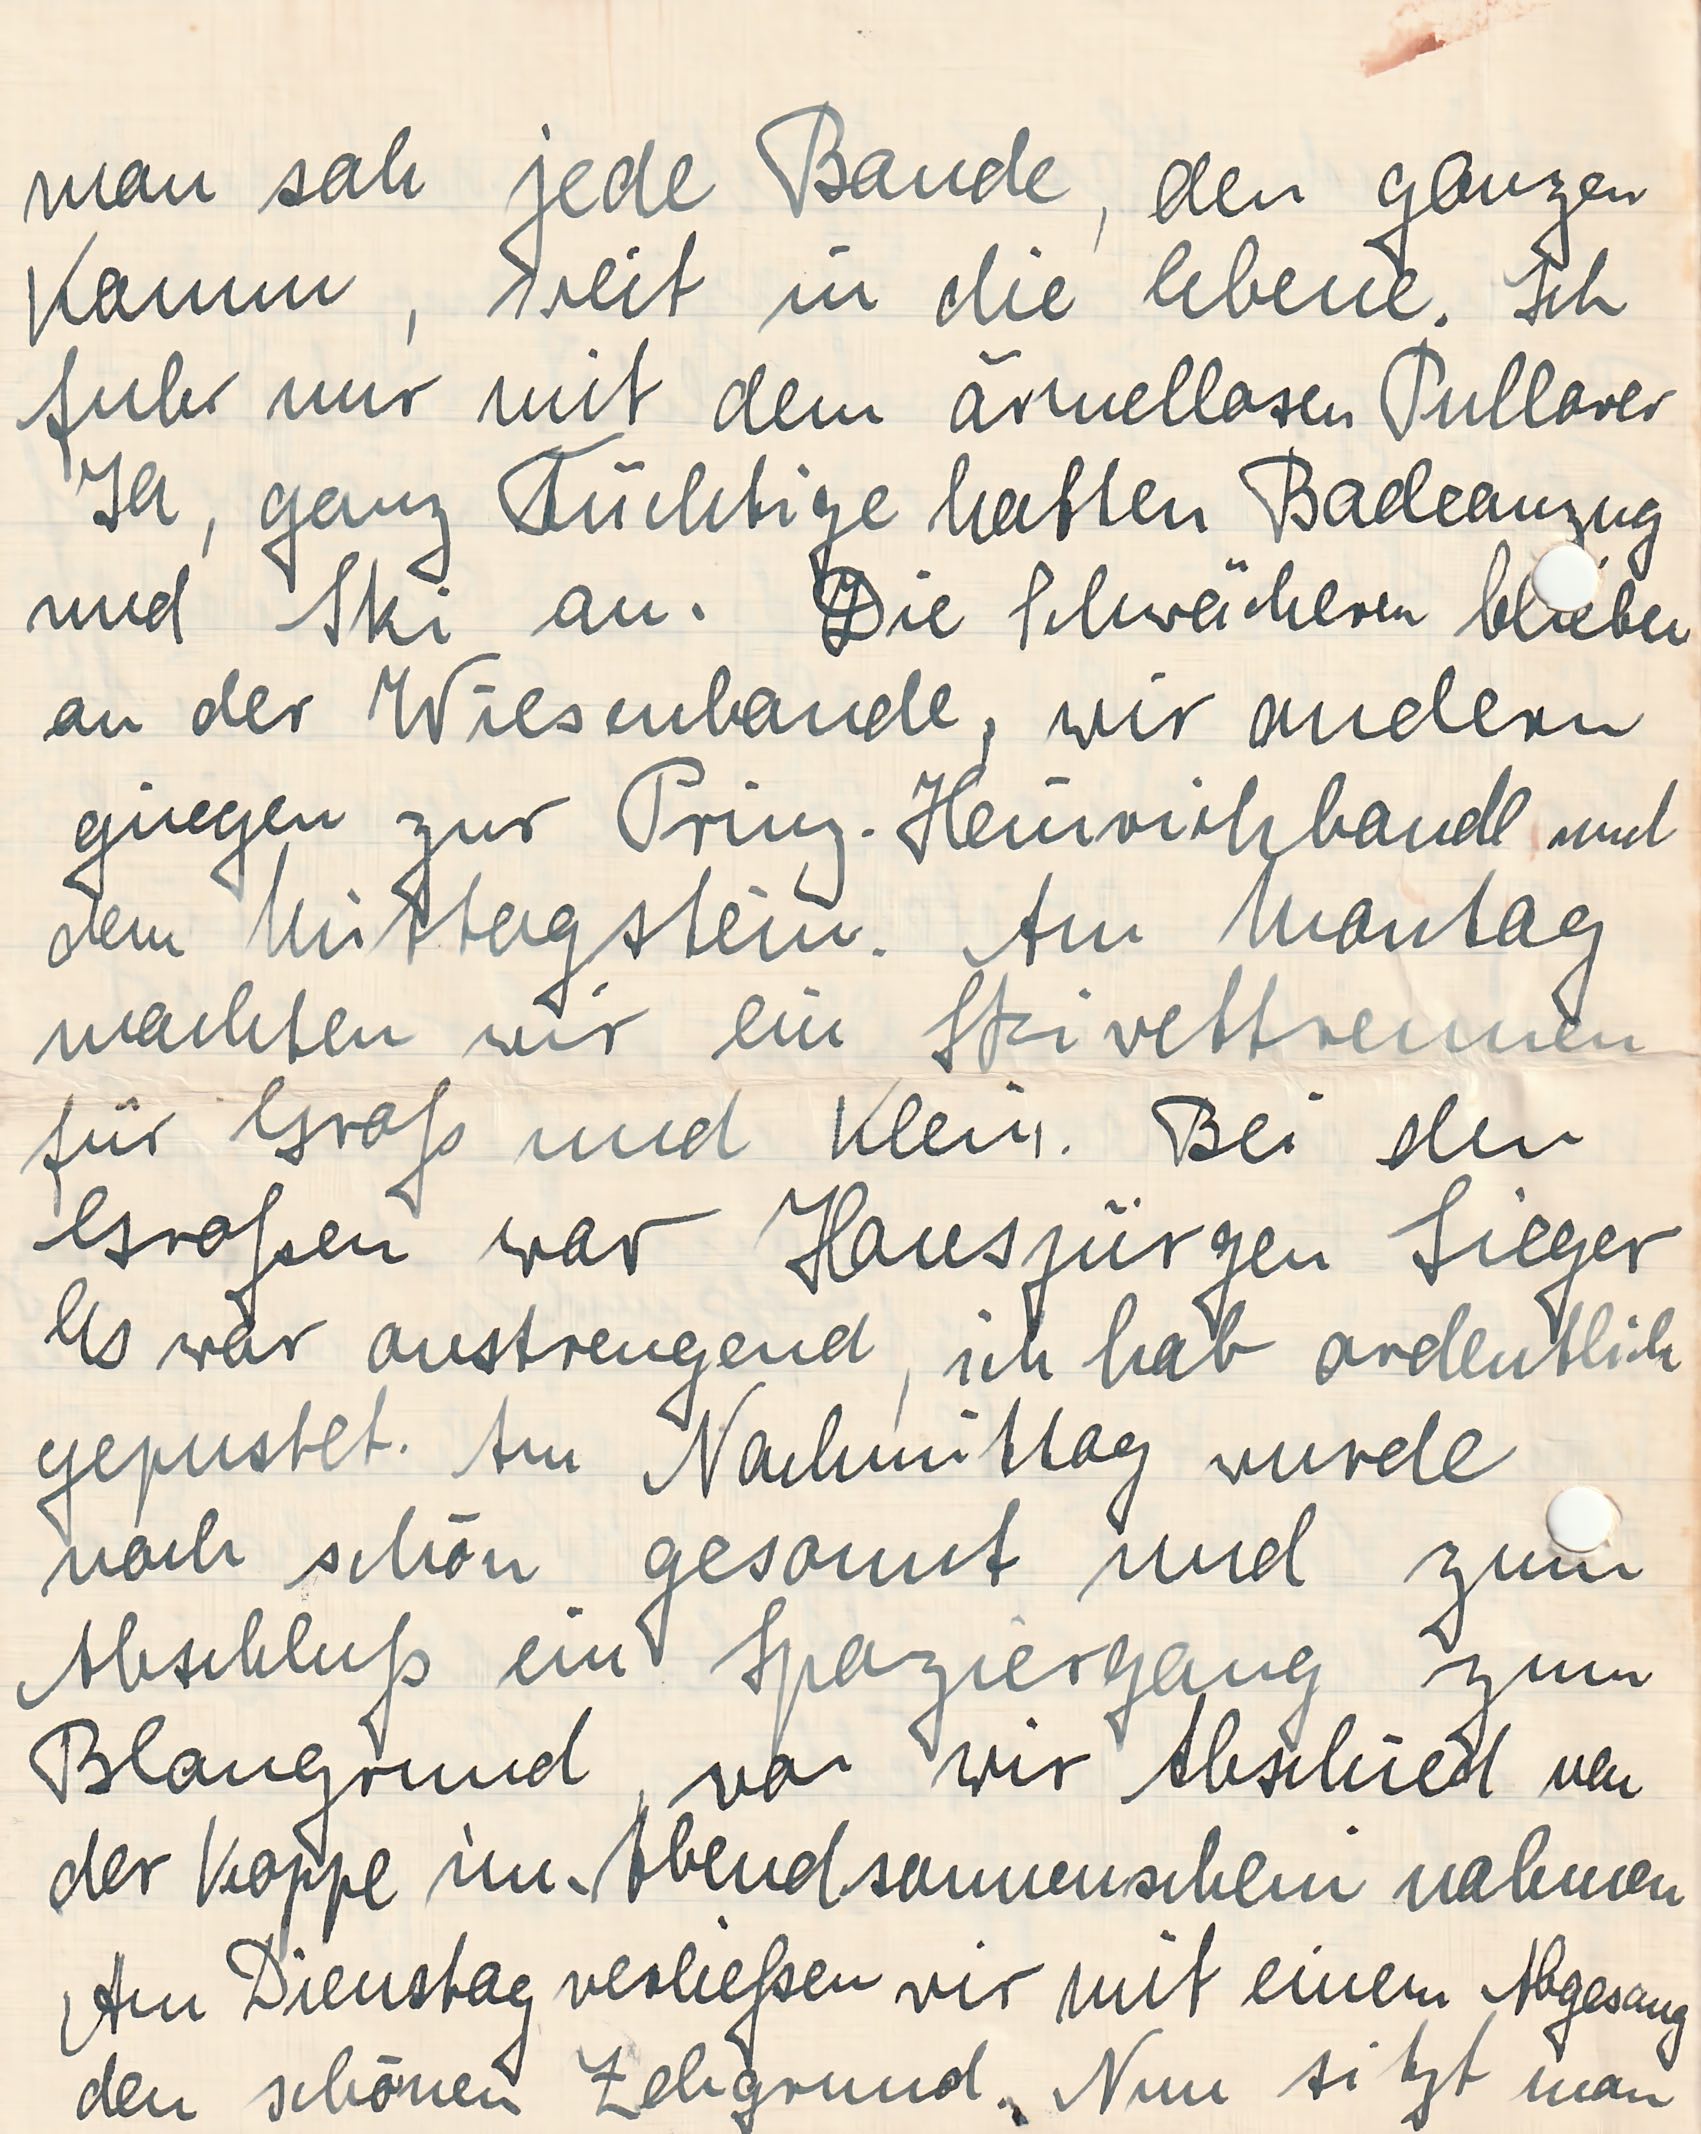 man sah jede Baude, den ganzen
Kamm, weit in die Ebene. Ich
fuhr nur mit dem ärmellosen Pullover
Ja, ganz Tüchtige hatten Badeanzug
und Ski an. Die Schwächeren blieben
an der Wiesenbaude, wir andern
gingen zur Prinz-Heinrichbaude und
dem Mittagstein. Am Montag
machten wir ein Skiwettrennen
für Groß und Klein. Bei den
Großen war Hansjürgen Sieger
Es war anstrengend, ich hab ordentlich
gepustet. Am Nachmittag wurde
noch schön gesonnt und zum
Abschluß ein Spaziergang zum
Blaugrund, wo wir Abschied von
der Koppe im Abendsonnenschein nahmen
Am Dienstag verließen wir mit einem Abgesang
den schönen Zehgrund. Nun sitzt man